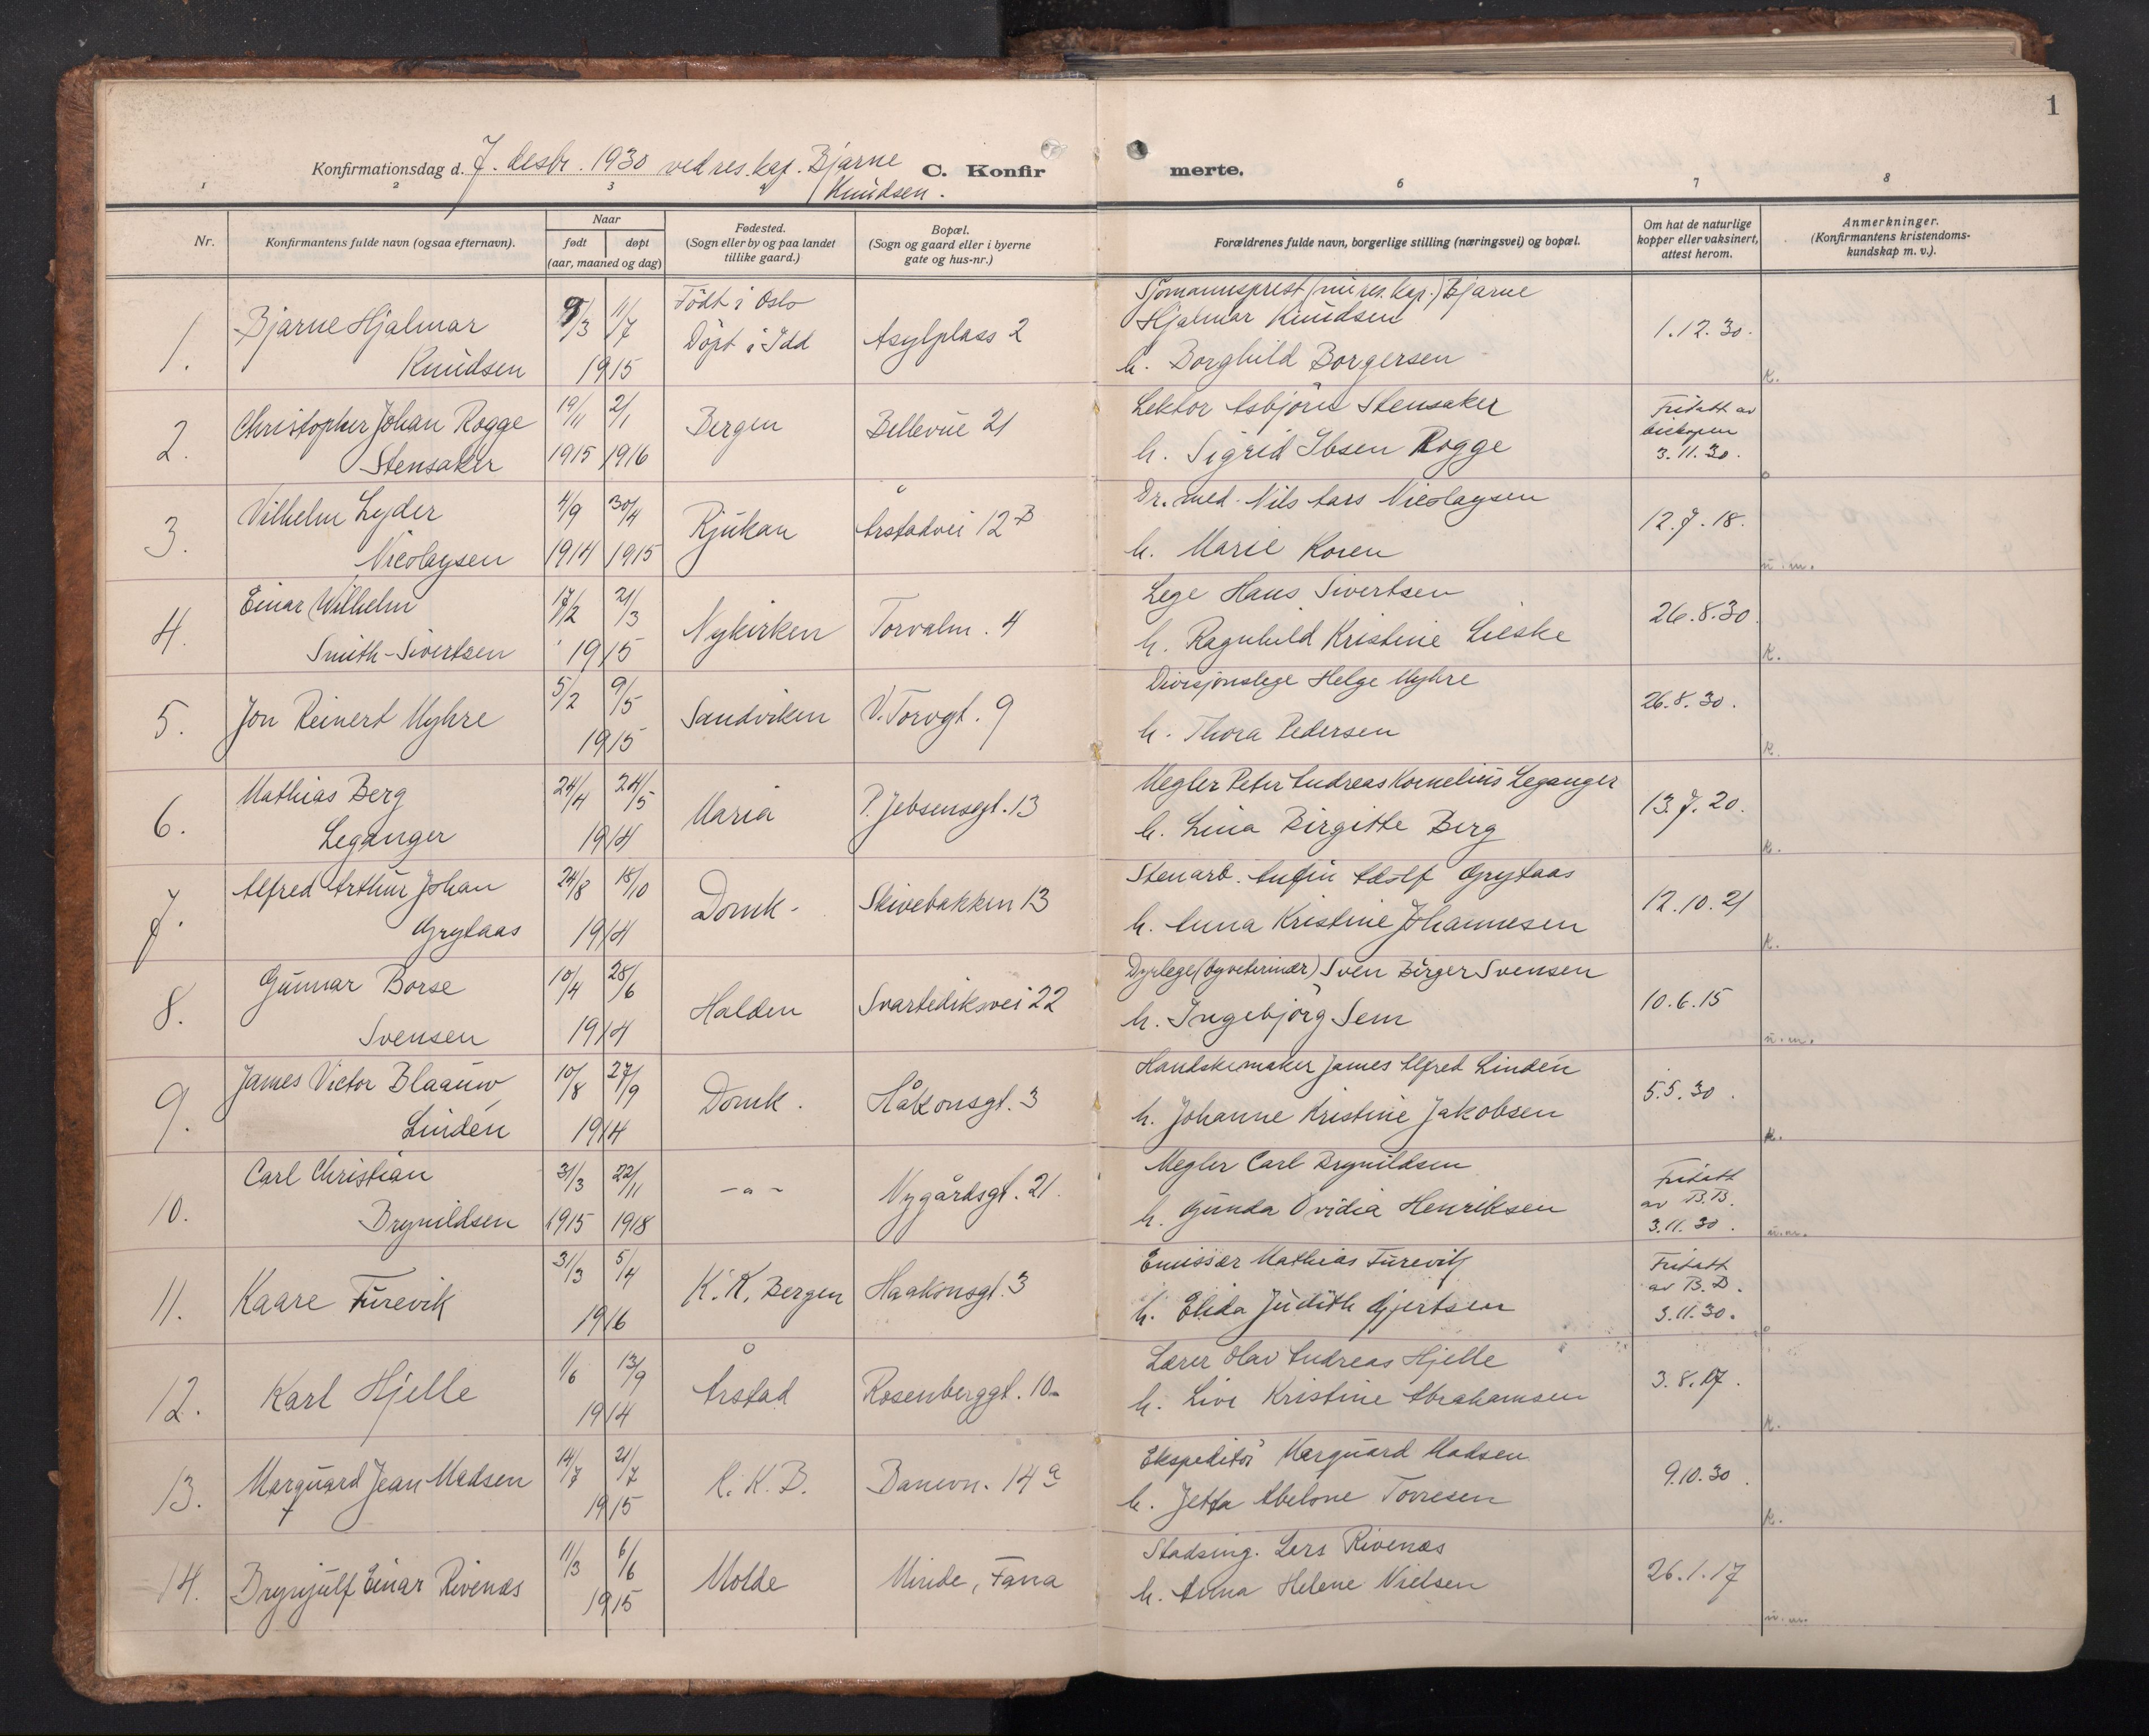 1
Konfirmationsdag d. 7. desbr. 1930 ved res. kap. Bjarne
Knudsen.
C. Konfir
merte.
1 2 3 6 7 8
Nr.
Konfirmantens fulde navn (ogsaa efternavn).
Naar
født
døpt
(aar, maaned og dag)
Fødested.
(Sogn eller by og paa landet
tillike gaard.)
Bopæl.
(Sogn og gaard eller i byerne
gate og hus-nr.)
Forældrenes fulde navn, borgerlige stilling (næringsvei) og bopæl.
Om hat de naturlige
kopper eller vaksinert,
attest herom.
Anmerkninger.
(Konfirmantens kristendoms-
kundskap m. v.).
1.
Bjarne Hjalmar
Knudsen
/3 11/7
1915
Födt i Oslo
Döpt i Idd
Asylplass 2
Sjömannsprest (nu res. kap.) Bjarne
Hjalmar Knudsen
h. Borghild Borgersen
1.12.30.
K.
2.
Christopher Johan Rogge
Stensaker
19/11 2/1
1915 1916
Bergen
Bellevue 21
Lektor Asbjörn Stensaker
h. Sigrid Ibsen Rogge
Fritatt av
biskopen
3.11.30.
3.
Vilhelm Lyder
Nicolaysen
4/9 30/4
1914 1915
Rjukan
Årstadvei 12 B
Dr. med. Nils Aars Nicolaysen
h. Marie Koren
12.7.18.
u.m.
4.
Einar Wilhelm
Smith-Sivertsen
17/2 21/3
1915
Nykirken
Torvalm. 4
Lege Hans Sivertsen
h. Ragnhild Kristine Lieske
26.8.30.
K.
5.
Jon Reinert Myhre
5/2 9/5
1915
Sandviken
V. Torvgt. 9
Divisjonslege Helge Myhre
h. Thora Pedersen
26.8.30.
K.
6.
Mathias Berg
Leganger
24/4 24/5
1914
Maria
P. Jebsensgt. 13
Megler Peter Andreas Kornelius Leganger
h. Lina Birgitte Berg
13.7.20.
K.
7.
Alfred Arthur Johan
Grytaas
24/8 18/10
1914
Domk.
Skivebakken 13
Stenarb. Adolf Grytaas
h. Anna Kristine Johannesen
12.10.21
K.
8.
Gunnar Borse
Svensen
10/4 28/6
1914
Halden
Svartediksvei 22
Dyrlege (byveterinær) Sven Birger Svensen
h. Ingebjörg Sem
10.6.15
u.m.
9.
James Victor Blaauw
Lindén
10/8 27/9
1914
Domk.
Håkonsgt. 3
Handskemaker James Alfred Lindén
h. Johanne Kristine Jakobsen
5.5.30.
K.
10.
Carl Christian
Brynildsen
31/3 22/11
1915 1918
-"-
Nygårdsgt. 21.
Megler Carl Brynildsen
h. Gunda Ovidia Henriksen
Fritatt
av B.B.
3.11.30.
u.m.
11.
Kaare Furevik
31/3 5/4
1916
K.K. Bergen
Haakonsgt. 3
Emissær Mathias Furevik
h. Elida Judith Gjertsen
Fritatt
av B.B.
3.11.30.
12.
Karl Hjelle
1/6 13/9
1914
Årstad
Rosenberggt. 10
Lærer Olav Andreas Hjelle
h. Live Kristine Abrahamsen
3.8.17.
K.
13.
Marquard Jean Madsen
14/7 21/7
1915
K.K.B.
Danevn. 14 a
Ekspeditör Marquard Madsen
h. Jetta Abelone Torresen
9.10.30.
K.
14.
Brynjulf Einar Rivenæs
11/3 6/6
1915
Molde
Minde, Fana
Stadsing. Lars Rivenæs
h. Anna Helene Nielsen
26.1.17
u.m.